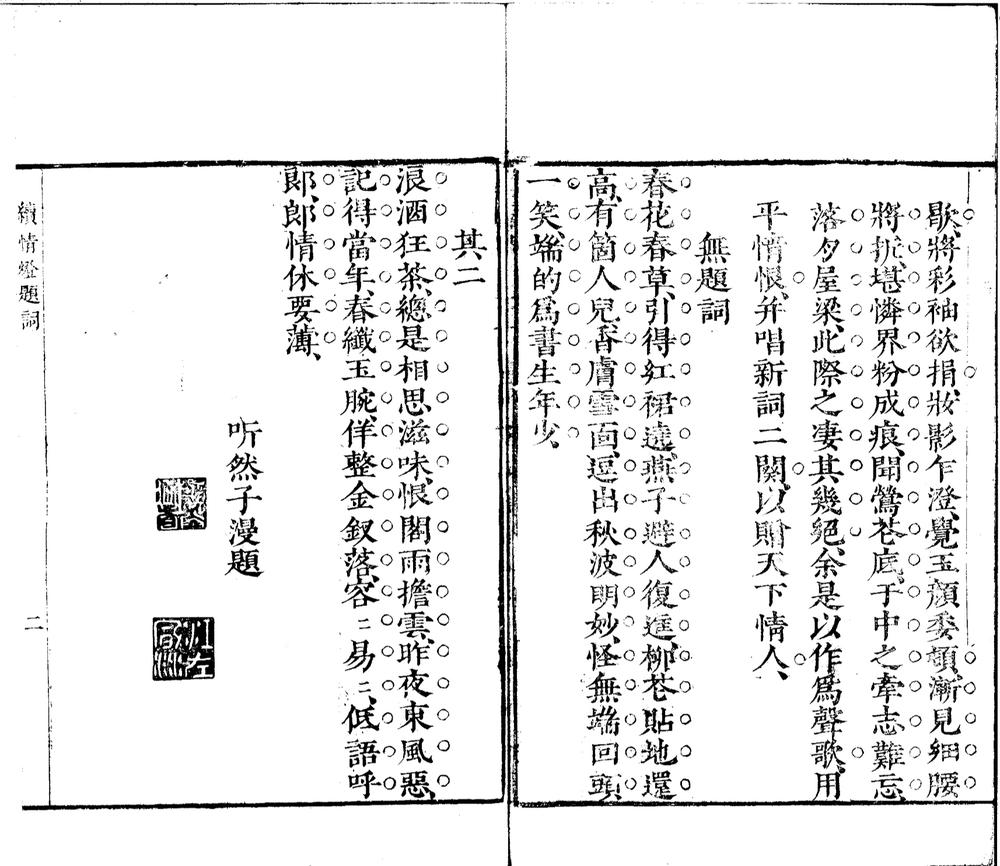 歇、將彩袖欲捐、妝影乍澄、覺玉顏委頓、漸見細腰
將抚、堪憐界粉成痕、聞鶯花底、于中之牽志難忘、
落夕屋梁、此際之凄其幾絕、余是以作爲聲歌、用
平情恨、并唱新詞二闋、以贈天下情人、
無題詞
春花春草、引得紅裙遶、燕子避人復進、柳花貼地還
高、有箇人兒、香膚雪面、逗出秋波明妙、怪無端回頭
一笑、端的爲書生年少、
其二
浪酒狂茶、總是相思滋味、恨閣雨擔雲、昨夜東風惡、
記得當年、春纖玉腕、佯整金釵落、容二易二、低語呼
郎、郎情休要薄、
听然子漫題
續情燈題詞
二